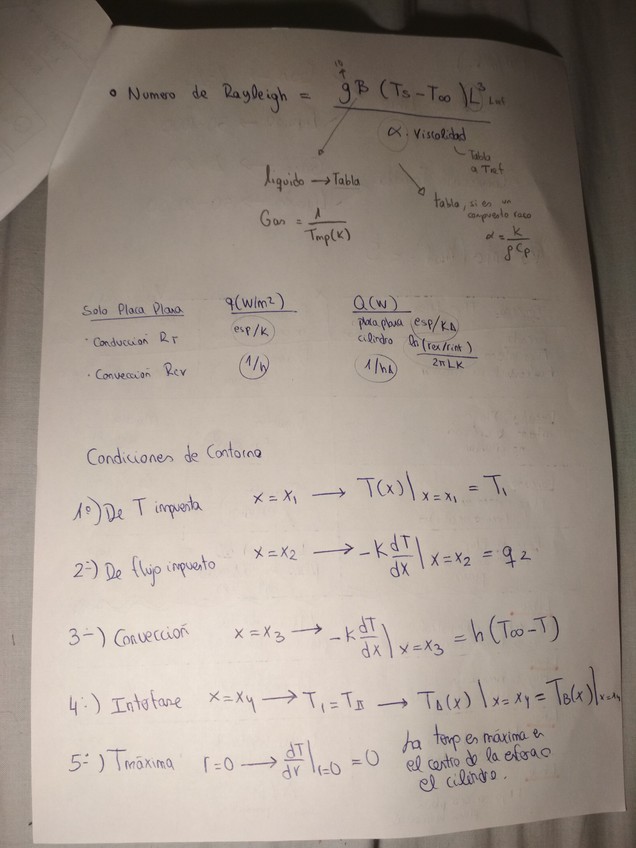 • Numero de Rayleigh = g B (Ts - T∞) L³
α · Viscolidad
Tabla
a Tref
liquido → Tabla
tabla, si es un
compuesto raro
Gas = 1 / Tmp(K)
α = k / ρ Cp
Solo Placa Plana q(W/m²) Q(W)
· Conduccion RT esp/K placa plana esp/KA
cilindro ln(rex/rint) / 2πLK
· Conveccion Rcv 1/h 1/hA
Condiciones de Contorno
1º) De T impuesta x = x₁ → T(x)| x = x₁ = T₁
2º) De flujo impuesto x = x₂ → -k dT/dx | x = x₂ = q₂
3º) Conveccion x = x₃ → -k dT/dx | x = x₃ = h (T∞ - T)
4º) Interfase x = x₄ → T₁ = TB → TA(x) | x = x₄ = TB(x)| x = x₄
5º) Tmáxima r = 0 → dT/dr | r = 0 = 0 La temp es máxima en
el centro de la esfera o
el cilindro.